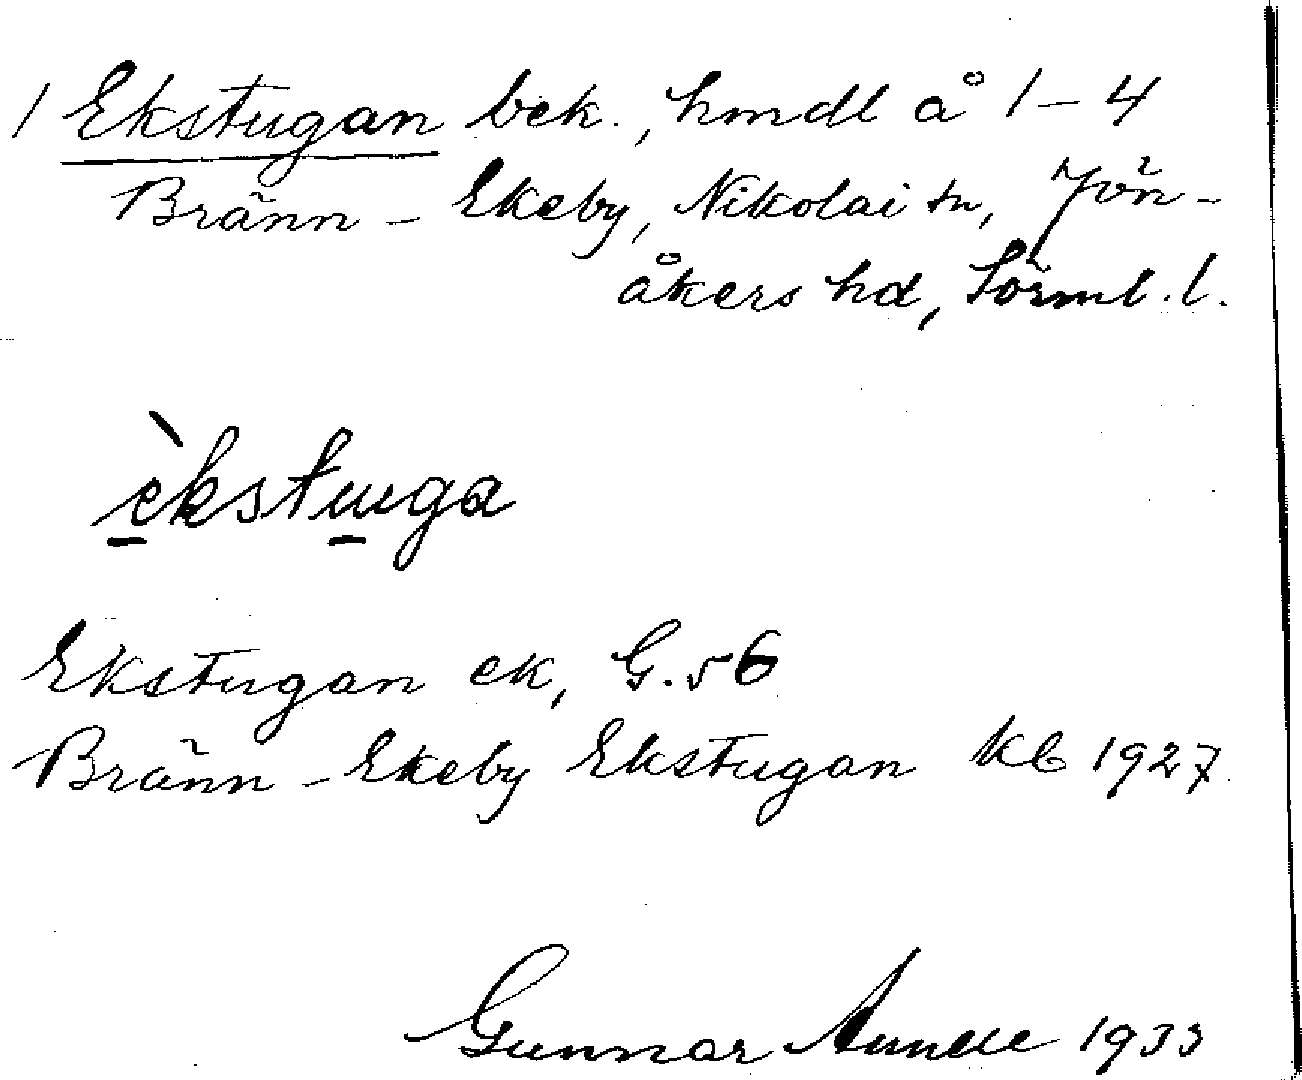 1 Ekstugan bek., hmdl å 1–4
Bränn-Ekeby, Nikolai sn, Jön-
åkers hd, Sörml. l.
èkstuga
Ekstugan ek, G. 56
Bränn-Ekeby Ekstugan Kb 1927
Gunnar 1933